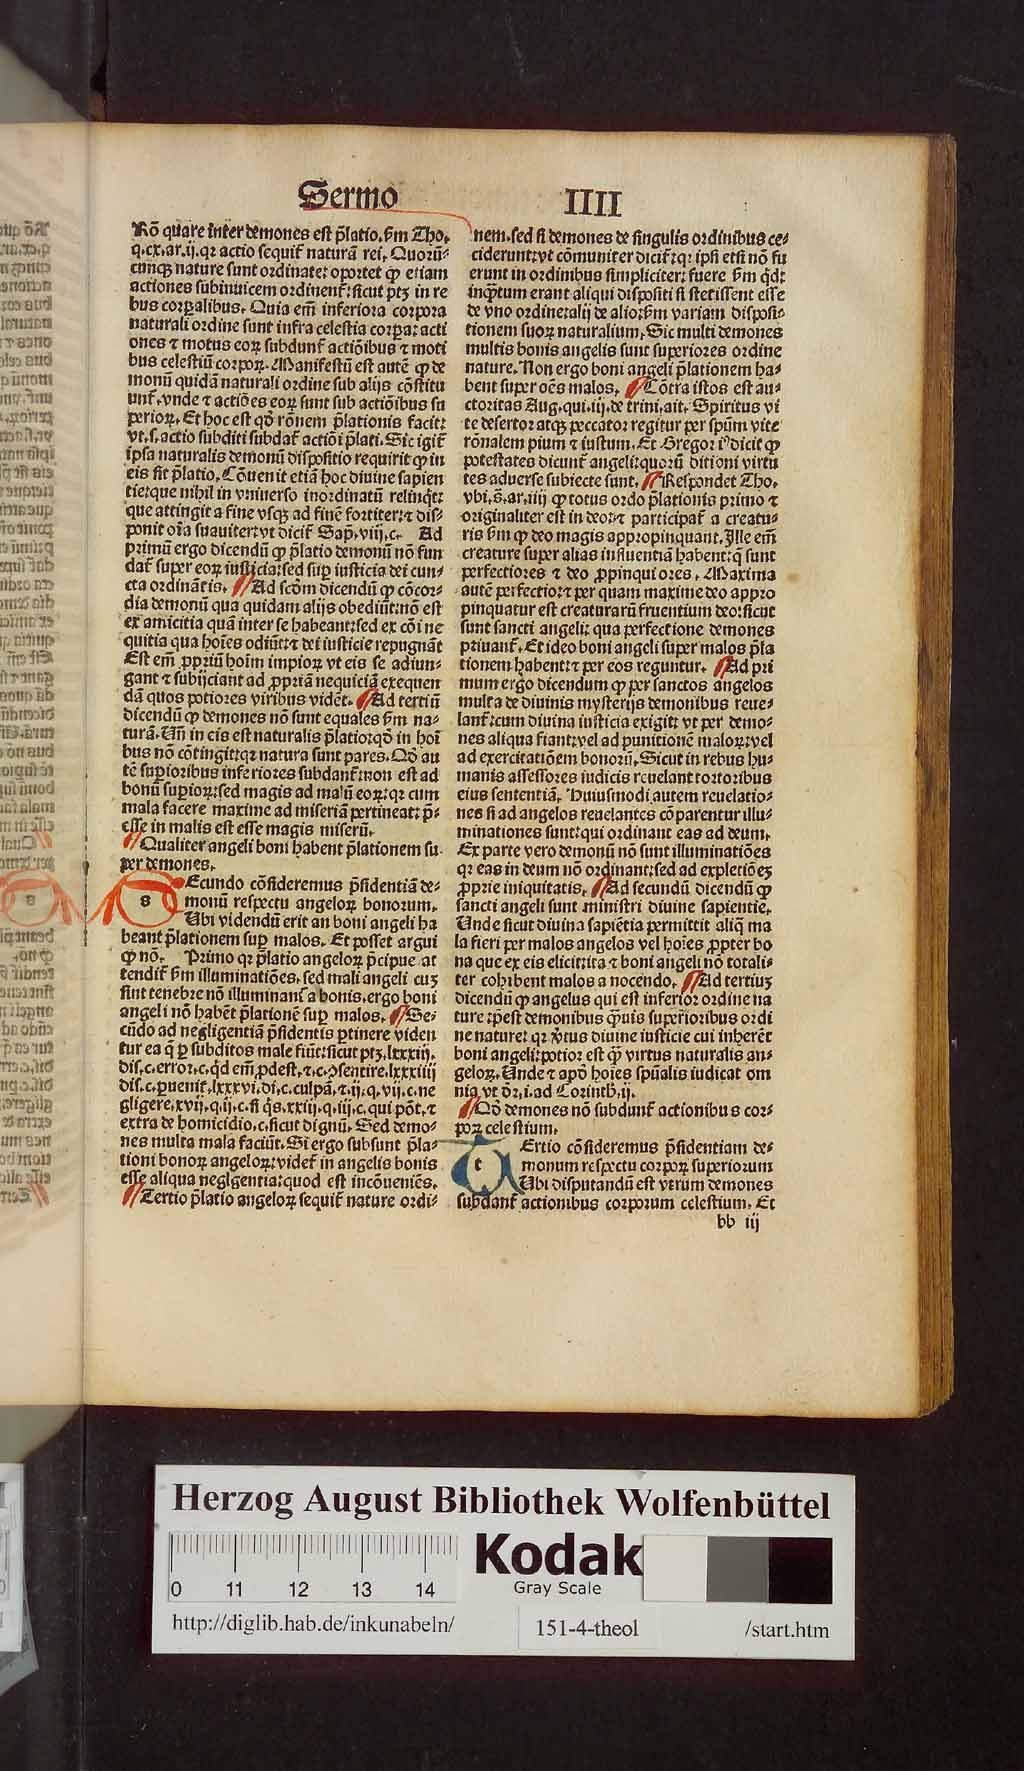 Sermo IIII
Rō quare inter demones est p̄latio. ẜm Tho.
q. cx. ar. ij. qꝛ actio sequit̃ naturā rei. Quorū-
cunqꝫ nature sunt ordinate: oportet ꝙ etiam
actiones subinuicem ordinent̃: sicut ptꝫ in re
bus corꝑalibus. Quia em̄ inferiora corpora
naturali ordine sunt infra celestia corꝑa: acti
ones ⁊ motus eoꝝ subdunt̃ actiōibus ⁊ moti
bus celestiū corpoꝝ. Manifestū est autē ꝙ de
monū quidā naturali ordine sub alijs cōstitu
unt̃. vnde ⁊ actiōes eoꝝ sunt sub actiōibus su
perioꝝ. Et hoc est qđ rōnem p̄lationis facit:
vt. s. actio subditi subdat̃ actiōi p̄lati. Sic igit̃
ipsa naturalis demonū dispositio requirit ꝙ in
eis sit p̄latio. Cōuenit etiā hoc diuine sapien
tie: que nihil in vniuerso inordinatū relinq̇t:
que attingit a fine vsqꝫ ad finē fortiter: ⁊ dis-
ponit oīa suauiter: vt dicit̃ Sap̄. viij. c. Ad
primū ergo dicendū ꝙ p̄latio demonū nō fun
dat̃ super eoꝝ iusticia: sed suꝑ iusticia dei cun-
cta ordinātis. Ad scďm dicendū ꝙ cōcor-
dia demonū qua quidam alijs obediūt: nō est
ex amicitia quā inter se habeant: sed ex cōi ne
quitia qua hoīes odiūt: ⁊ dei iusticie repugnāt
Est em̄ ꝓpriū hoīm impioꝝ vt eis se adiun-
gant ⁊ subijciant ad ꝓpriā nequiciā exequen
dā quos potiores viribus vidēt. Ad tertiū
dicendū ꝙ demones nō sunt equales ẜm na-
turā. Uñ in eis est naturalis p̄latio: qđ in hoī
bus nō cōtingit: qꝛ natura sunt pares. Qđ au
tē superioribus inferiores subdant̃: non est ad
bonū superioꝝ: sed magis ad malū eoꝝ: qꝛ cum
mala facere maxime ad miseriā pertineat: p̄-
esse in malis est esse magis miserū.
Qualiter angeli boni habent p̄lationem su-
per demones.
s Ecundo cōsideremus p̄sidentiā de-
monū respectu angeloꝝ bonorum.
Ubi videndū erit an boni angeli ha
beant p̄lationem suꝑ malos. Et posset argui
ꝙ nō. Primo qꝛ p̄latio angeloꝝ p̄cipue at
tendit̃ ẜm illuminatiōes. sed mali angeli cuꝫ
sint tenebre nō illuminant̃ a bonis. ergo boni
angeli nō habēt p̄lationē suꝑ malos. Se-
cūdo ad negligentiā p̄sidentis ꝑtinere viden
tur ea q̄ ꝑ subditos male fiūt: sicut ptꝫ. lxxxiij.
dis. c. error. c. q̇d em̄ ꝓdest. ⁊. c. ꝯsentire. lxxxiiij
dis. c. peruenit. lxxxvi. di. c. culpā. ⁊. ij. q. vij. c. ne
gligere. xvij. q. ij. c. si q̇s. xxiij. q. iij. c. qui pōt. ⁊
extra de homicidio. c. sicut dignū. Sed demo-
nes multa mala faciūt. Si ergo subsunt p̄la-
tioni bonoꝝ angeloꝝ: videt̃ in angelis bonis
esse aliqua neglgentia: quod est incōueniēs.
Tertio p̄latio angeloꝝ sequit̃ nature ordi-
nem. sed si demones de singulis ordinibus ce-
ciderunt: vt cōmuniter dicit̃: qꝛ ipsi etsi nō fu
erunt in ordinibus simpliciter: fuere ẜm q̇d:
inq̄ꝫtum erant aliqui dispositi si stetissent esse
de vno ordine: alij de alio: ẜm variam disposi-
tionem suoꝝ naturalium. Sic multi demones
multis bonis angelis sunt superiores ordine
nature. Non ergo boni angeli p̄lationem ha-
bent super oēs malos. Cōtra istos est au-
ctoritas Aug. qui. iij. de trini. ait. Spiritus vi
te desertor atqꝫ peccator regitur per spūm vite
rōnalem pium ⁊ iustum. Et Gregor iꝰ dicit ꝙ
potestates dicunt̃ angeli: quorū ditioni virtu
tes aduerse subiecte sunt. Respondet Tho.
vbi. s̄. ar. iiij ꝙ totus ordo p̄lationis primo ⁊
originaliter est in deo: ⁊ participat̃ a creatu-
ris ẜm ꝙ deo magis appropinquant. Ille em̄
creature super alias influentiā habent: q̄ sunt
perfectiores ⁊ deo ꝓpinqui ores. Maxima
autē perfectio: ⁊ per quam maxime deo appro
pinquatur est creaturarū fruentium deo: sicut
sunt sancti angeli: qua perfectione demones
priuant̃. Et ideo boni angeli super malos p̄la
tionem habent: ⁊ per eos reguntur. Ad pri
mum ergo dicendum ꝙ per sanctos angelos
multa de diuinis mysterijs demonibus reue-
lant̃: cum diuina iusticia exigit: vt per demo-
nes aliqua fiant: vel ad punitionē maloꝝ: vel
ad exercitatiōem bonorū. Sicut in rebus hu-
manis assessores iudicis reuelant tortoribus
eius sententiā. Huiusmodi autem reuelatio-
nes si ad angelos reuelantes cōparentur illu-
minationes sunt: qui ordinant eas ad deum.
Ex parte vero demonū nō sunt illuminatiōes
qꝛ eas in deum nō ordinant: sed ad expletiōeꝫ
ꝓprie iniquitatis. Ad secundū dicendū ꝙ
sancti angeli sunt ministri diuine sapientie.
Unde sicut diuina sapiētia permittit aliq̄ ma
la fieri per malos angelos vel hoīes ꝓpter bo
na que ex eis elicit: ita ⁊ boni angeli nō totali-
ter cohibent malos a nocendo. Ad tertiuꝫ
dicendū ꝙ angelus qui est inferior ordine na
ture p̄est demonibus q̄uis superioribus ordi
ne nature: qꝛ v̓tus diuine iusticie cui inherēt
boni angeli: potior est q̄ꝫ virtus naturalis an-
geloꝝ. Unde ⁊ apđ hoīes spūalis iudicat om
nia vt dꝛ. i. ad Corinth. ij.
Qđ demones nō subdunt̃ actionibus cor-
poꝝ celestium.
t Ertio cōsideremus p̄sidentiam de-
monum respectu corpoꝝ superiorum
Ubi disputandū est vtrum demones
subdant̃ actionibus corporum celestium. Et
bb iij
Herzog August Bibliothek Wolfenbüttel
0 11 12 13 14
Kodak
Gray Scale
http://diglib.hab.de/inkunabeln/ 151-4-theol /start.htm